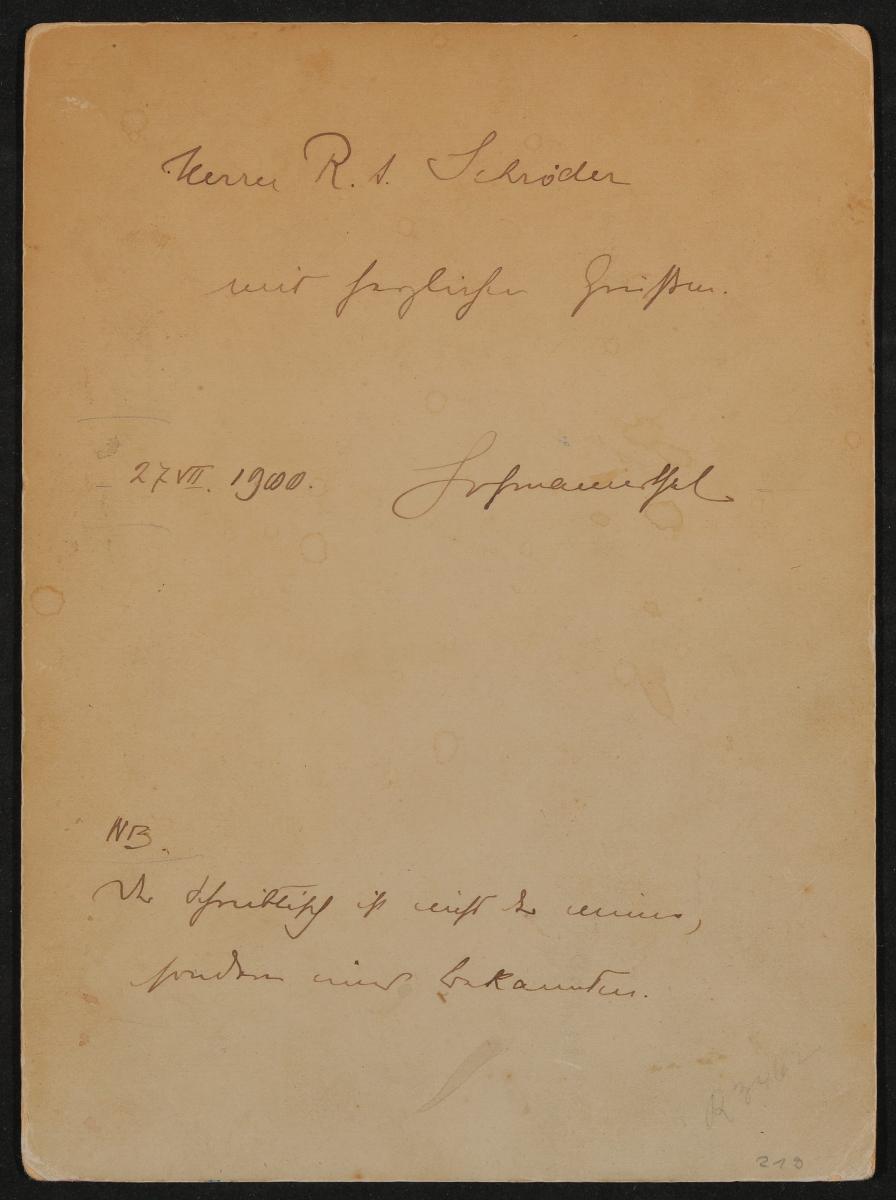 Herrn R. A. Schröder
mit herzlichen Grüßen.
27 VII. 1900. Hofmannsthal
NB.
Der Schreibtisch ist nicht der meine,
sondern eines Bekannten.
219